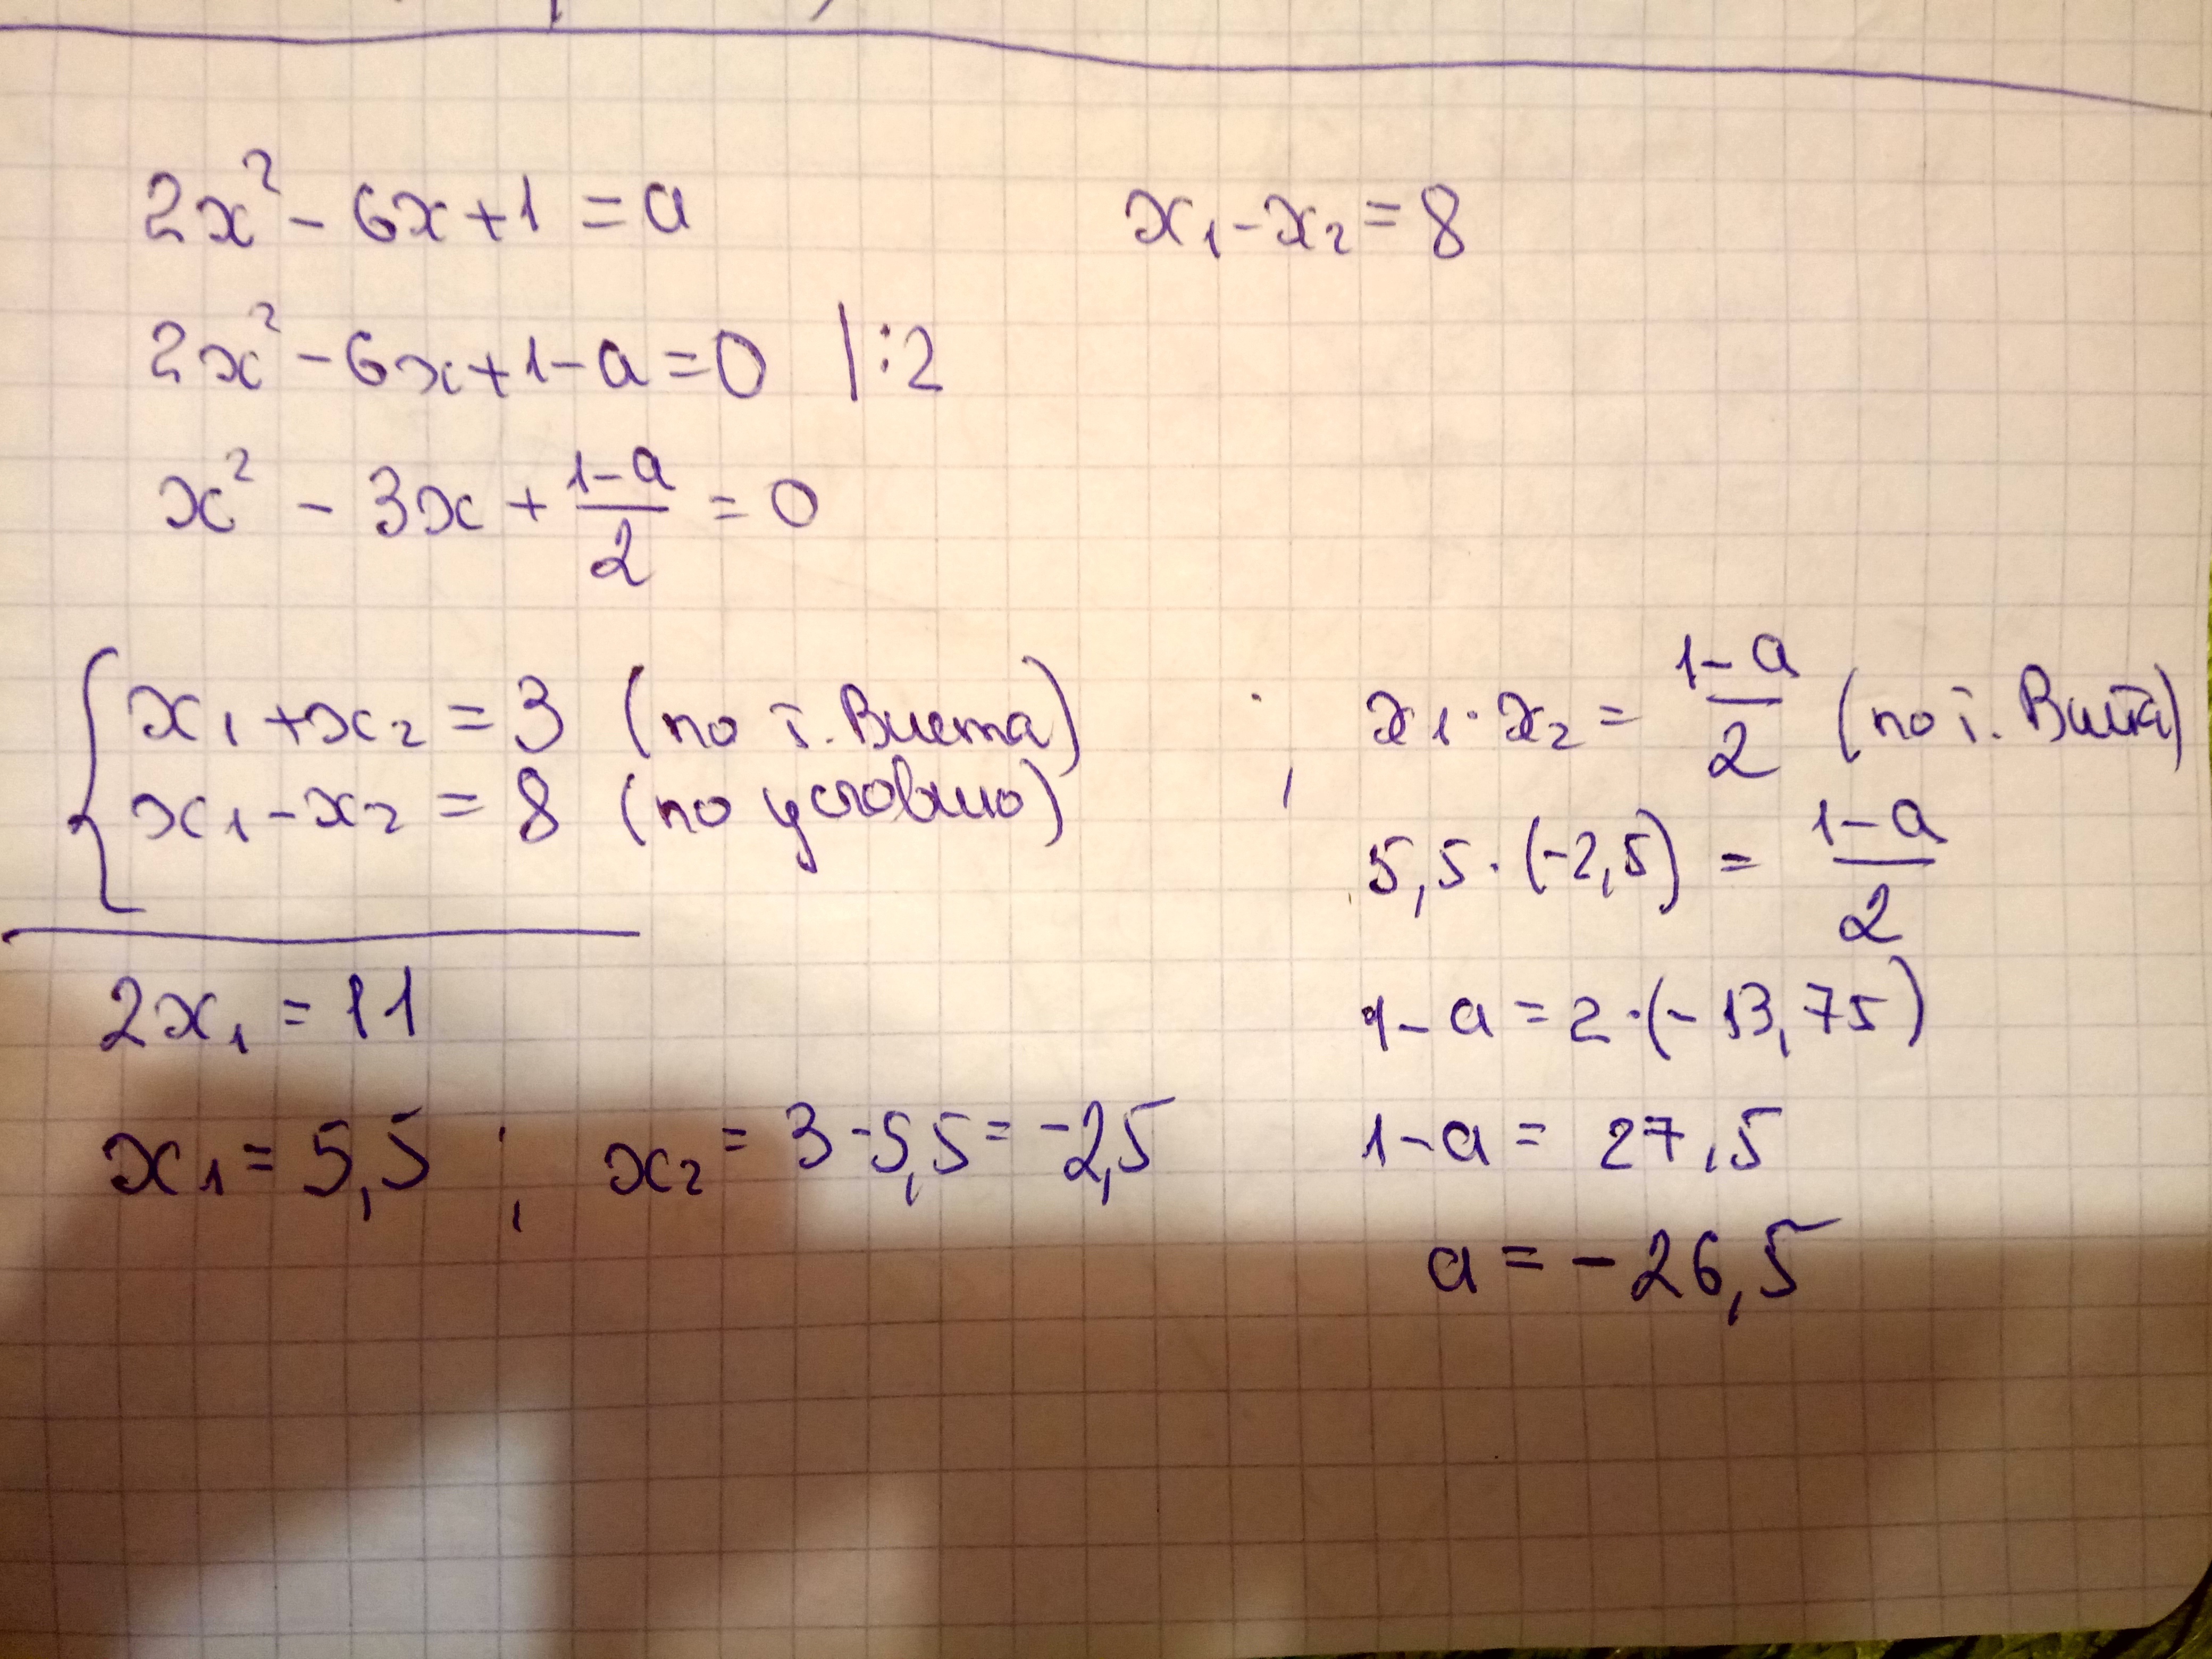 2x² - 6x + 1 = a
x₁ - x₂ = 8
2x² - 6x + 1 - a = 0 | : 2
x² - 3x + (1-a)/2 = 0
{ x₁ + x₂ = 3 (по т. Виета)
x₁ - x₂ = 8 (по условию) ;
2x₁ = 11
x₁ = 5,5 ; x₂ = 3 - 5,5 = -2,5
x₁ · x₂ = (1-a)/2 (по т. Виета)
5,5 · (-2,5) = (1-a)/2
1 - a = 2 · (-13,75)
1 - a = 27,5
a = -26,5